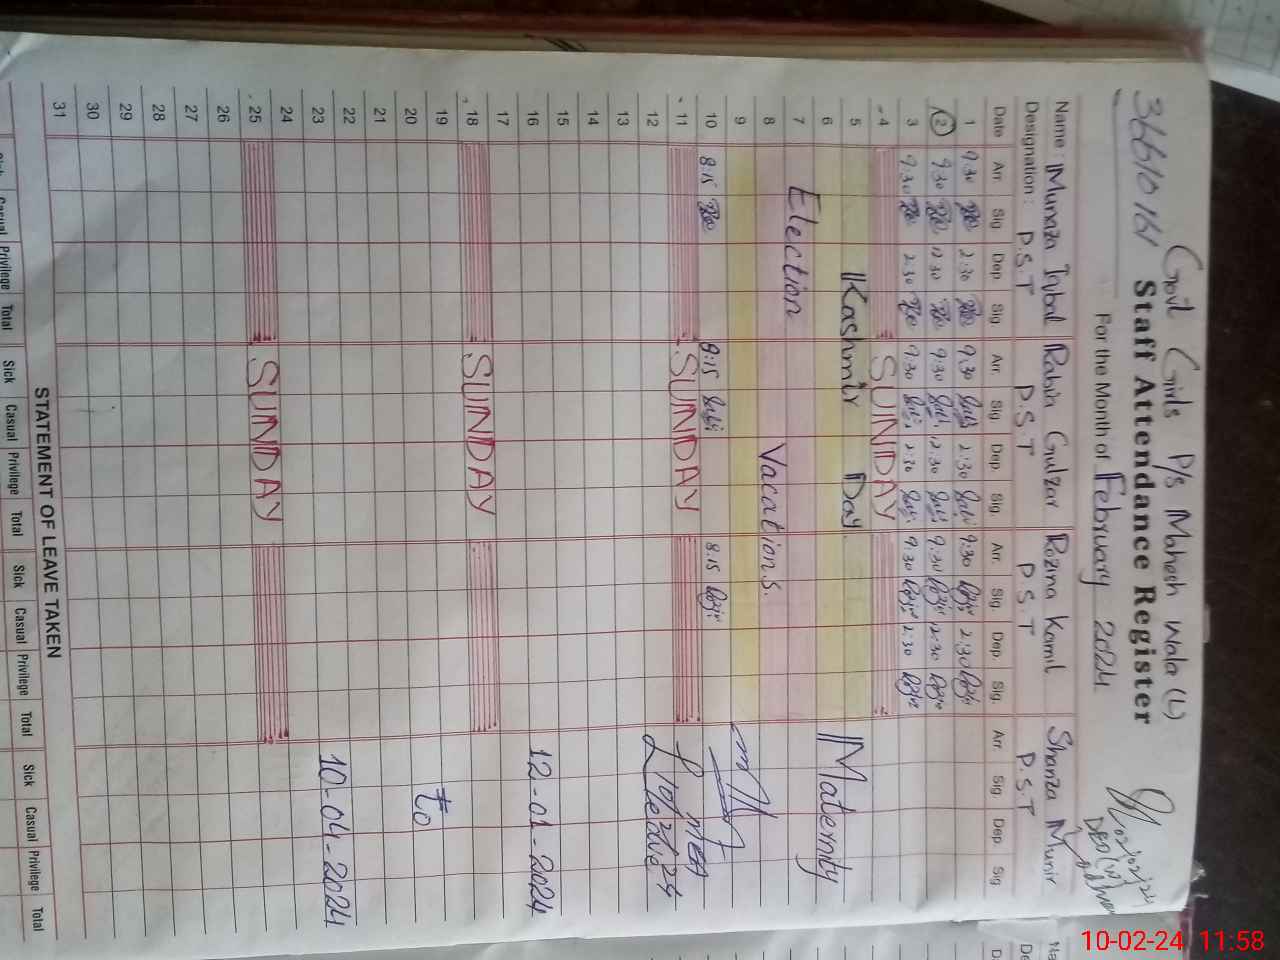 Govt Girls P/s Mahesh Wala (L)
36610161 Staff Attendance Register
For the Month of February 2024
02/02/24
DEO (W)
Name : Munaza Iqbal Rabia Gulzar Rozina Kamil Shanza Munir
Designation : P.S.T P.S.T P.S.T P.S.T
Date Arr. Sig Dep. Sig Arr. Sig Dep. Sig Arr. Sig. Dep. Sig. Arr. Sig. Dep. Sig
1 9:30 2:30 9:30 2:30 9:30 2:30
2 9:30 12:30 9:30 12:30 9:30 12:30
3 9:30 2:30 9:30 2:30 9:30 2:30
4 SUNDAY
5 Kashmir Day
6 Maternity
7 Election
8 Vacations.
9
10 8:15 8:15 8:15
11 SUNDAY
12 Leave
13
14
15
16 12-01-2024
17
18 SUNDAY
19
20 to
21
22
23 10-04-2024
24
25 SUNDAY
26
27
28
29
30
31
STATEMENT OF LEAVE TAKEN
Sick Casual Privilege Total Sick Casual Privilege Total Sick Casual Privilege Total Sick Casual Privilege Total
10-02-24 11:58